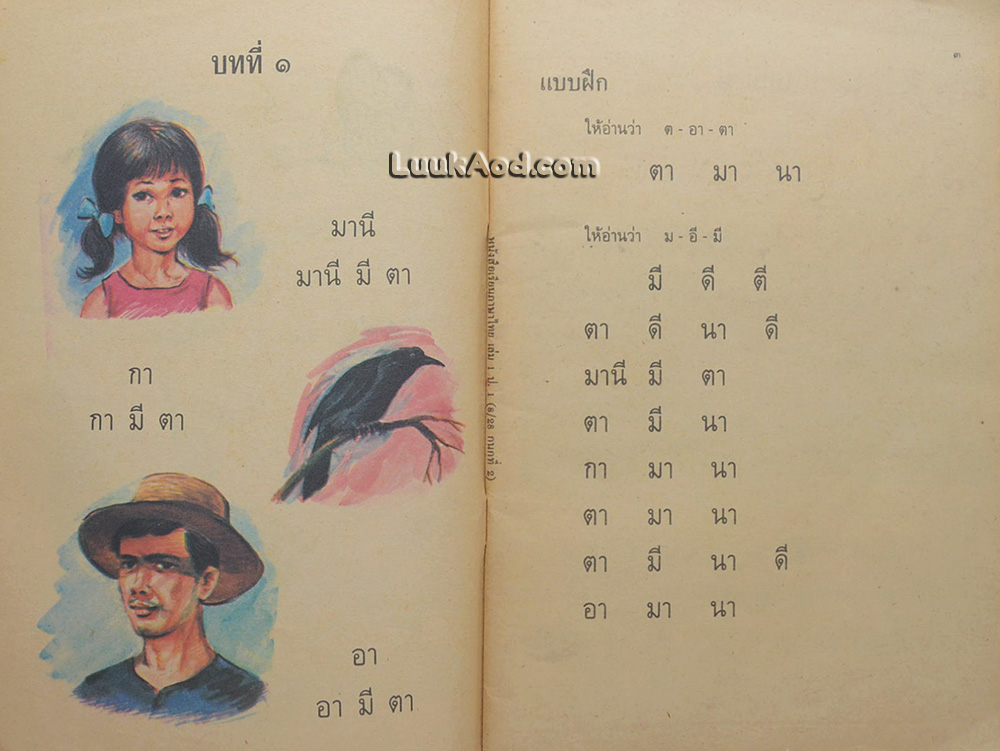 บทที่ ๑
มานี
มานี มี ตา
กา
กา มี ตา
อา
อา มี ตา
LuukAod.com
หนังสือเรียนภาษาไทย เล่ม 1 ป. 1 (6/28 กนกที่ 2)
๓
แบบฝึก
ให้อ่านว่า ต - อา - ตา
ตา มา นา
ให้อ่านว่า ม - อี - มี
มี ดี ตี
ตา ดี นา ดี
มานี มี ตา
ตา มี นา
กา มา นา
ตา มา นา
ตา มี นา ดี
อา มา นา